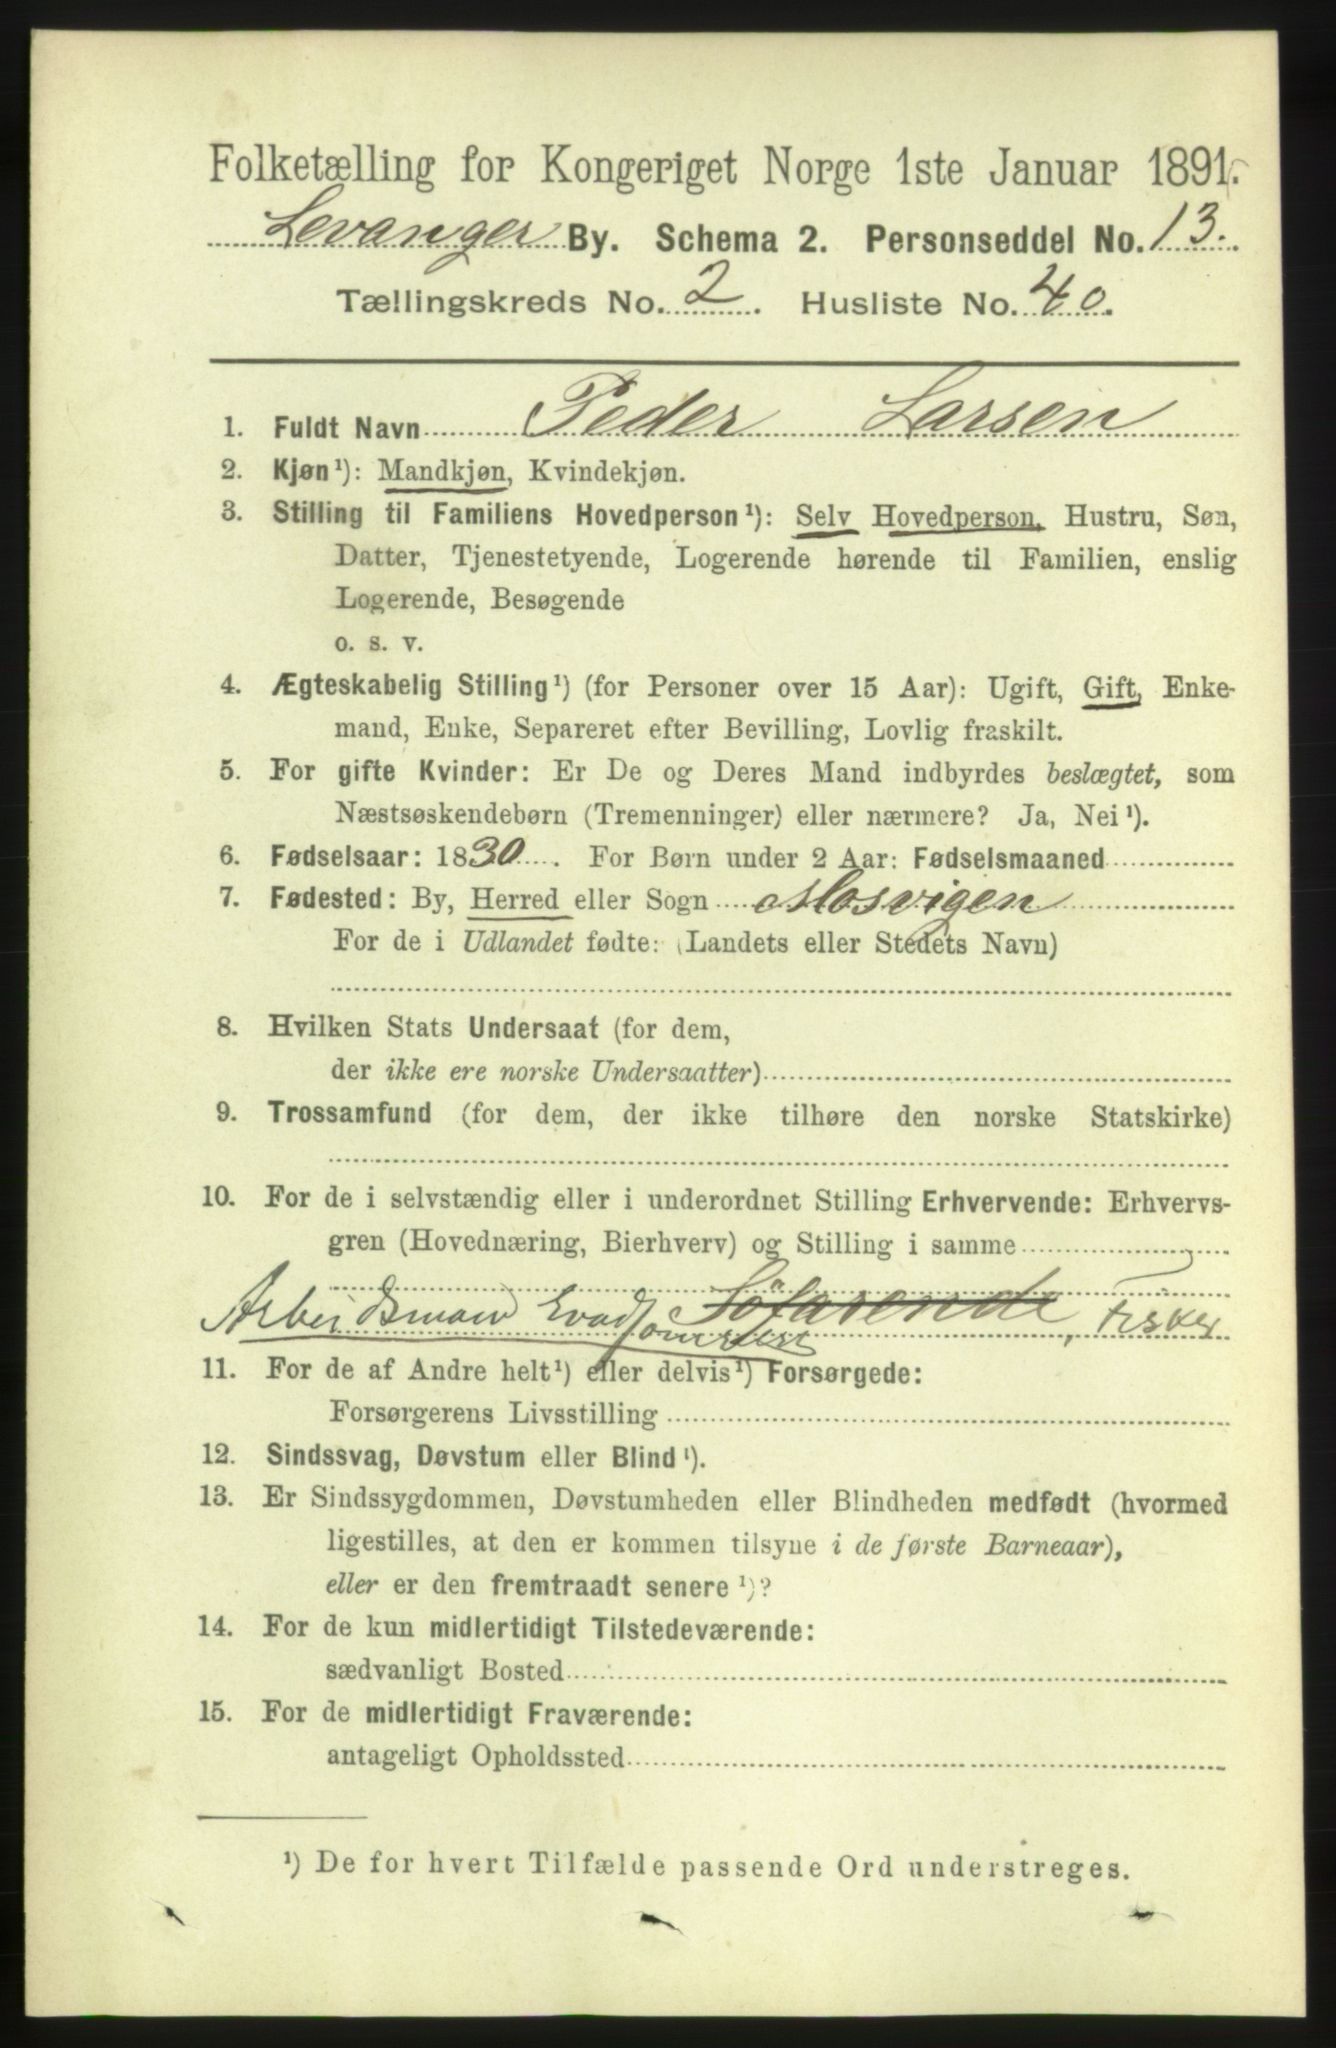 Folketælling for Kongeriget Norge 1ste Januar 1891.
Levanger By. Schema 2. Personseddel No. 13.
Tællingskreds No. 2. Husliste No. 40.
1. Fuldt Navn Peder Larsen
2. Kjøn¹): Mandkjøn, Kvindekjøn.
3. Stilling til Familiens Hovedperson¹): Selv Hovedperson, Hustru, Søn,
Datter, Tjenestetyende, Logerende hørende til Familien, enslig
Logerende, Besøgende
o. s. v.
4. Ægteskabelig Stilling¹) (for Personer over 15 Aar): Ugift, Gift, Enke-
mand, Enke, Separeret efter Bevilling, Lovlig fraskilt.
5. For gifte Kvinder: Er De og Deres Mand indbyrdes beslægtet, som
Næstsøskendebørn (Tremenninger) eller nærmere? Ja, Nei¹).
6. Fødselsaar: 1830. For Børn under 2 Aar: Fødselsmaaned
7. Fødested: By, Herred eller Sogn Mosvigen
For de i Udlandet fødte: (Landets eller Stedets Navn)
8. Hvilken Stats Undersaat (for dem,
der ikke ere norske Undersaatter)
9. Trossamfund (for dem, der ikke tilhøre den norske Statskirke)
10. For de i selvstændig eller i underordnet Stilling Erhvervende: Erhvervs-
gren (Hovednæring, Bierhverv) og Stilling i samme
Arbeidsmand Søfarende, Fisker
11. For de af Andre helt¹) eller delvis¹) Forsørgede:
Forsørgerens Livsstilling
12. Sindssvag, Døvstum eller Blind¹).
13. Er Sindssygdommen, Døvstumheden eller Blindheden medfødt (hvormed
ligestilles, at den er kommen tilsyne i de første Barneaar),
eller er den fremtraadt senere¹)?
14. For de kun midlertidigt Tilstedeværende:
sædvanligt Bosted
15. For de midlertidigt Fraværende:
antageligt Opholdssted
¹) De for hvert Tilfælde passende Ord understreges.